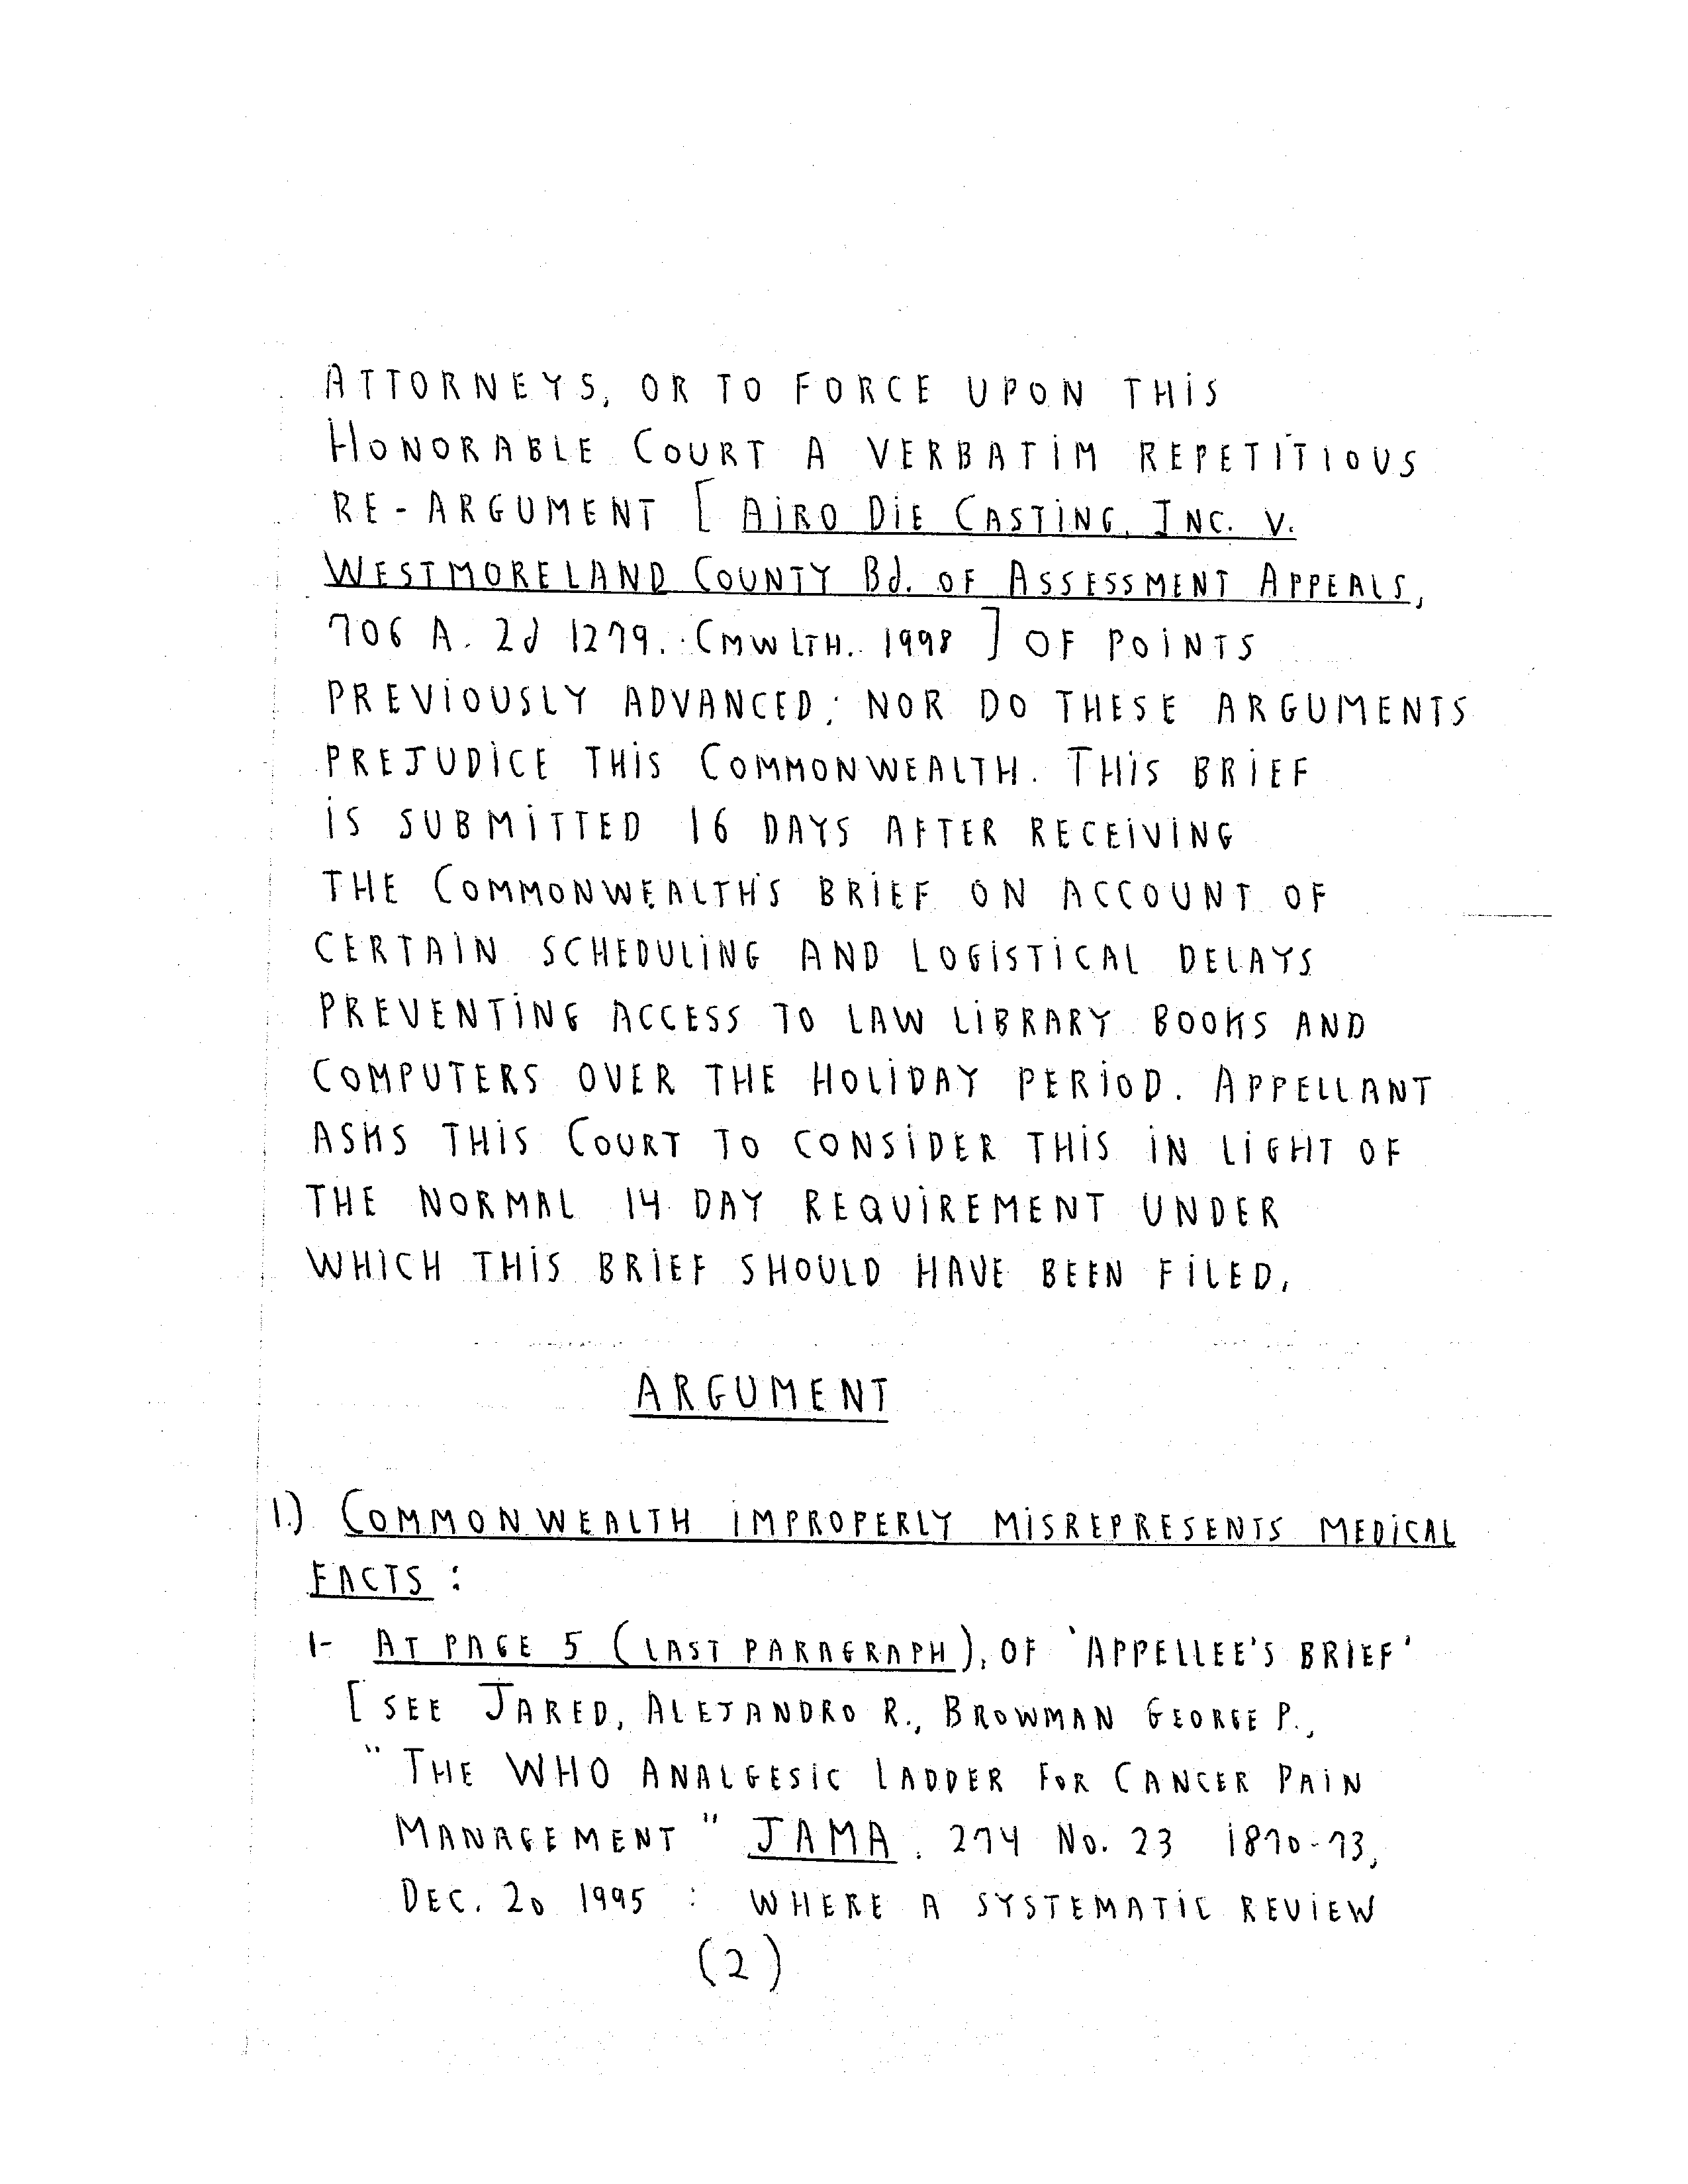 ATTORNEYS, OR TO FORCE UPON THIS
HONORABLE COURT A VERBATIM REPETITIOUS
RE-ARGUMENT [ AIRO DIE CASTING, INC. V.
WESTMORELAND COUNTY Bd. OF ASSESSMENT APPEALS,
706 A. 2d 1279. CMWLTH. 1998 ] OF POINTS
PREVIOUSLY ADVANCED; NOR DO THESE ARGUMENTS
PREJUDICE THIS COMMONWEALTH. THIS BRIEF
IS SUBMITTED 16 DAYS AFTER RECEIVING
THE COMMONWEALTH'S BRIEF ON ACCOUNT OF
CERTAIN SCHEDULING AND LOGISTICAL DELAYS
PREVENTING ACCESS TO LAW LIBRARY BOOKS AND
COMPUTERS OVER THE HOLIDAY PERIOD. APPELLANT
ASKS THIS COURT TO CONSIDER THIS IN LIGHT OF
THE NORMAL 14 DAY REQUIREMENT UNDER
WHICH THIS BRIEF SHOULD HAVE BEEN FILED.
ARGUMENT
1.) COMMONWEALTH IMPROPERLY MISREPRESENTS MEDICAL
FACTS :
1- AT PAGE 5 (LAST PARAGRAPH), OF 'APPELLEE'S BRIEF'
[ SEE JARED, ALEJANDRO R., BROWMAN GEORGE P.,
" THE WHO ANALGESIC LADDER FOR CANCER PAIN
MANAGEMENT " JAMA. 274 No. 23 1870-73,
DEC. 20 1995 : WHERE A SYSTEMATIC REVIEW
(2)